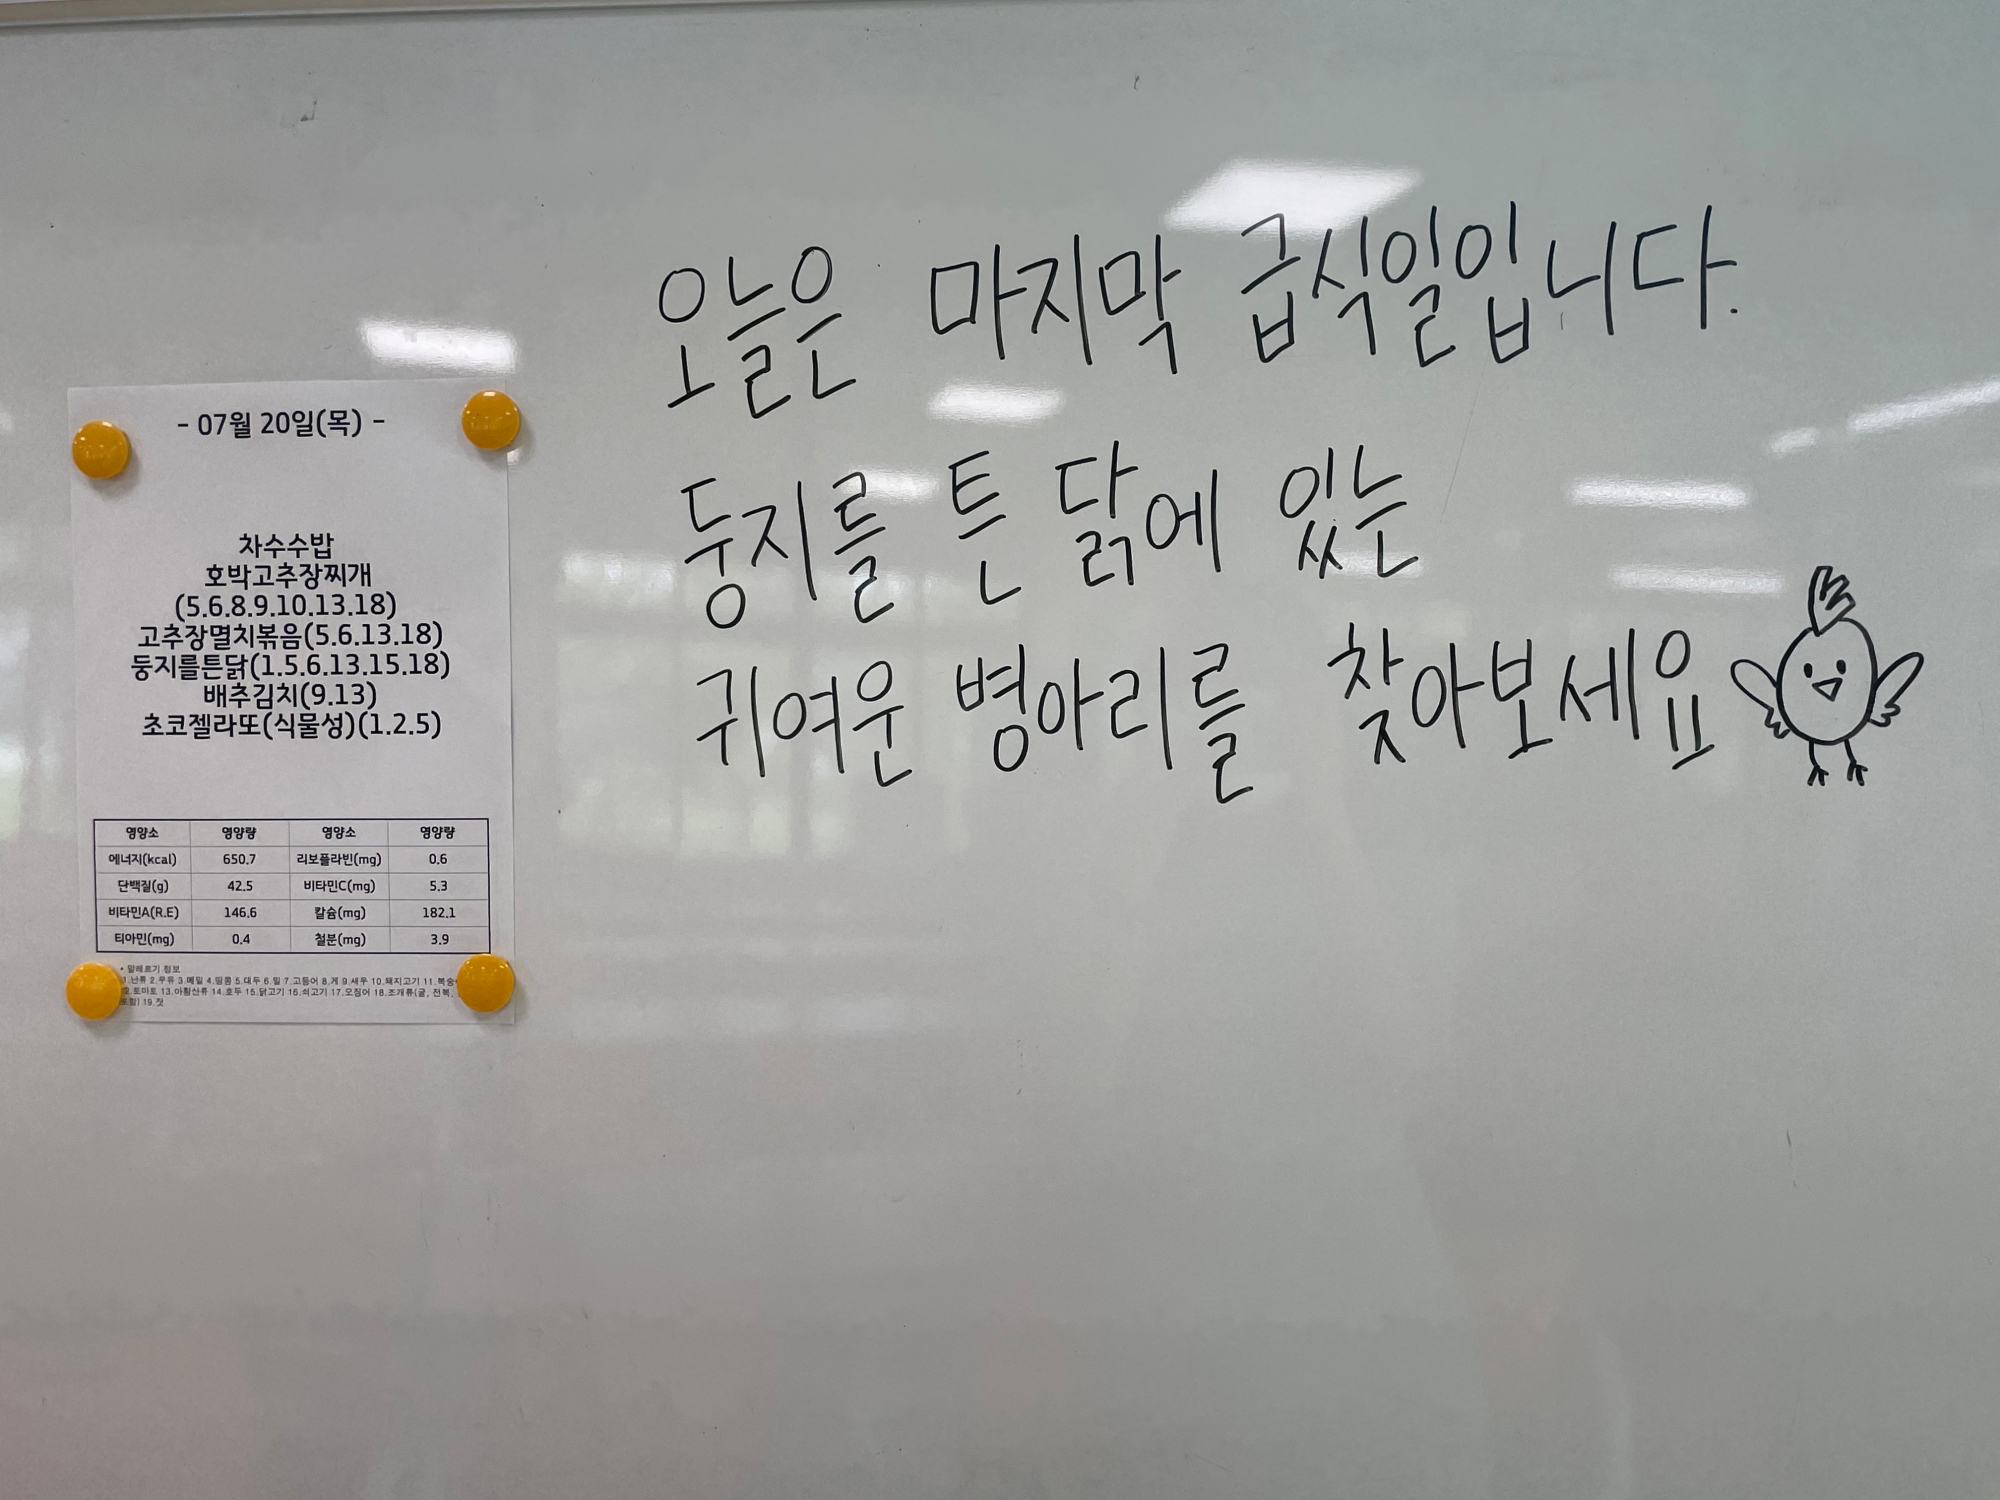 - 07월 20일(목) -
차수수밥
호박고추장찌개
(5.6.8.9.10.13.18)
고추장멸치볶음(5.6.13.18)
둥지를튼닭(1.5.6.13.15.18)
배추김치(9.13)
초코젤라또(식물성)(1.2.5)
영양소 영양량 영양소 영양량
에너지(kcal) 650.7 리보플라빈(mg) 0.6
단백질(g) 42.5 비타민C(mg) 5.3
비타민A(R.E) 146.6 칼슘(mg) 182.1
티아민(mg) 0.4 철분(mg) 3.9
• 알레르기 정보
1.난류 2.우유 3.메밀 4.땅콩 5.대두 6.밀 7.고등어 8.게 9.새우 10.돼지고기 11.복숭
2.토마토 13.아황산류 14.호두 15.닭고기 16.쇠고기 17.오징어 18.조개류(굴, 전복,
포함) 19.잣
오늘은 마지막 급식일입니다.
둥지를 튼 닭에 있는
귀여운 병아리를 찾아보세요